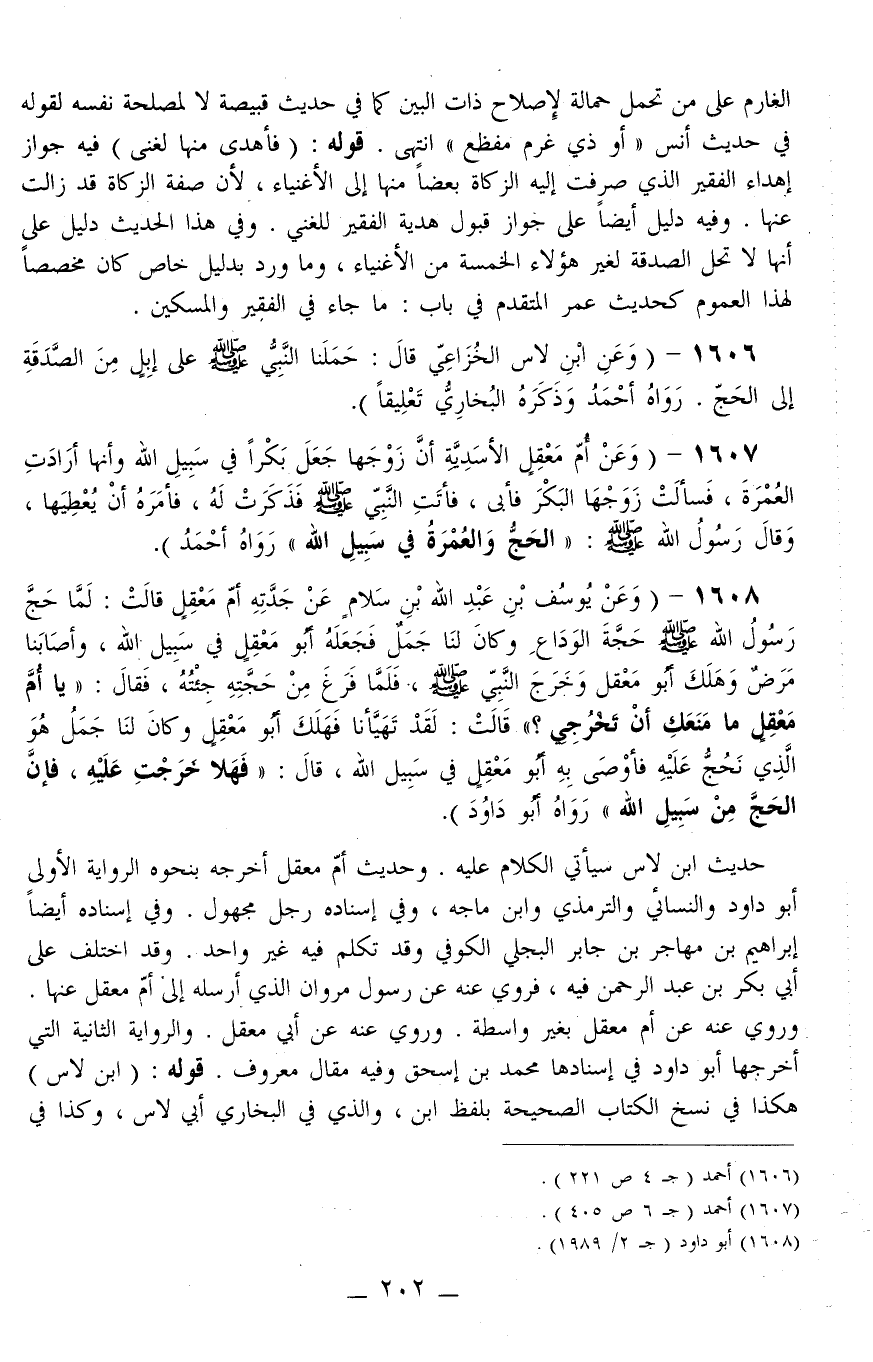 الغارم على من تحمل حمالة لإصلاح ذات البين كما في حديث قبيصة لا لمصلحة نفسه لقوله
في حديث أنس « أو ذي غرم مفظع » انتهى . قوله : ( فأهدى منها لغنى ) فيه جواز
إهداء الفقير الذي صرفت إليه الزكاة بعضاً منها إلى الأغنياء ، لأن صفة الزكاة قد زالت
عنها . وفيه دليل أيضاً على جواز قبول هدية الفقير للغني . وفي هذا الحديث دليل على
أنها لا تحل الصدقة لغير هؤلاء الخمسة من الأغنياء ، وما ورد بدليل خاص كان مخصصاً
لهذا العموم كحديث عمر المتقدم في باب : ما جاء في الفقير والمسكين .
١٦٠٦ – ( وَعَنِ ابْنِ لاس الخُزَاعِيّ قالَ : حَمَلَنا النَّبِيُّ ﷺ على إبِلٍ مِنَ الصَّدَقَةِ
إلى الحَجّ . رَوَاهُ أحْمَدُ وَذَكَرَهُ البُخارِيُّ تَعْلِيقاً ).
١٦٠٧ – ( وَعَنْ أُمّ مَعْقِلٍ الأسَدِيَّةِ أنَّ زَوْجَها جَعَلَ بَكْراً في سَبِيلِ الله وأنها أرَادَتِ
العُمْرَةَ ، فَسألَتْ زَوْجَهَا البَكْرَ فأبى ، فأتَتِ النَّبِيّ ﷺ فَذَكَرَتْ لَهُ ، فأمَرَهُ أنْ يُعْطِيَها ،
وَقالَ رَسُولُ الله ﷺ : « الحَجُّ وَالعُمْرَةُ في سَبِيلِ الله » رَوَاهُ أحْمَدُ ).
١٦٠٨ – ( وَعَنْ يُوسُف بْنِ عَبْدِ الله بْنِ سَلامٍ عَنْ جَدَّتِهِ أمّ مَعْقِلٍ قالَتْ : لَمَّا حَجَّ
رَسُولُ الله ﷺ حَجَّةَ الوَدَاعِ وكانَ لنَا جَمَلٌ فَجَعَلَهُ أبُو مَعْقِلٍ في سَبِيلِ الله ، وأصَابَنا
مَرَضٌ وَهَلَكَ أبُو مَعْقل وَخَرَجَ النَّبِيّ ﷺ ، فَلَمَّا فَرَغَ مِنْ حَجَّتِهِ جِئْتُهُ ، فَقالَ : « يا أُمَّ
مَعْقِلٍ ما مَنَعَكِ أنْ تَخْرُجِي ؟» قَالَتْ : لَقَدْ تَهَيَّأنا فَهَلَكَ أبُو مَعْقِلٍ وكانَ لنَا جَمَلُ هُوَ
الَّذِي نَحُجُّ عَلَيْهِ فأوْصَى بِهِ أبُو مَعْقِلٍ في سَبِيلِ الله ، قالَ : « فَهَلا خَرَجْتِ عَلَيْهِ ، فإنَّ
الحَجَّ مِنْ سَبِيلِ الله » رَوَاهُ أبُو دَاوُدَ ).
حديث ابن لاس سيأتي الكلام عليه . وحديث أمّ معقل أخرجه بنحوه الرواية الأولى
أبو داود والنسائي والترمذي وابن ماجه ، وفي إسناده رجل مجهول . وفي إسناده أيضاً
إبراهيم بن مهاجر بن جابر البجلي الكوفي وقد تكلم فيه غير واحد . وقد اختلف على
أبي بكر بن عبد الرحمن فيه ، فروي عنه عن رسول مروان الذي أرسله إلى أمّ معقل عنها .
وروي عنه عن أم معقل بغير واسطة . وروي عنه عن أبي معقل . والرواية الثانية التي
أخرجها أبو داود في إسنادها محمد بن إسحق وفيه مقال معروف . قوله : ( ابن لاس )
هكذا في نسخ الكتاب الصحيحة بلفظ ابن ، والذي في البخاري أبي لاس ، وكذا في
(١٦٠٦) أحمد ( جـ ٤ ص ٢٢١ ) .
(١٦٠٧) أحمد ( جـ ٦ ص ٤٠٥ ) .
(١٦٠٨) أبو داود ( جـ ٢/ ١٩٨٩) .
– ٢٠٢ –